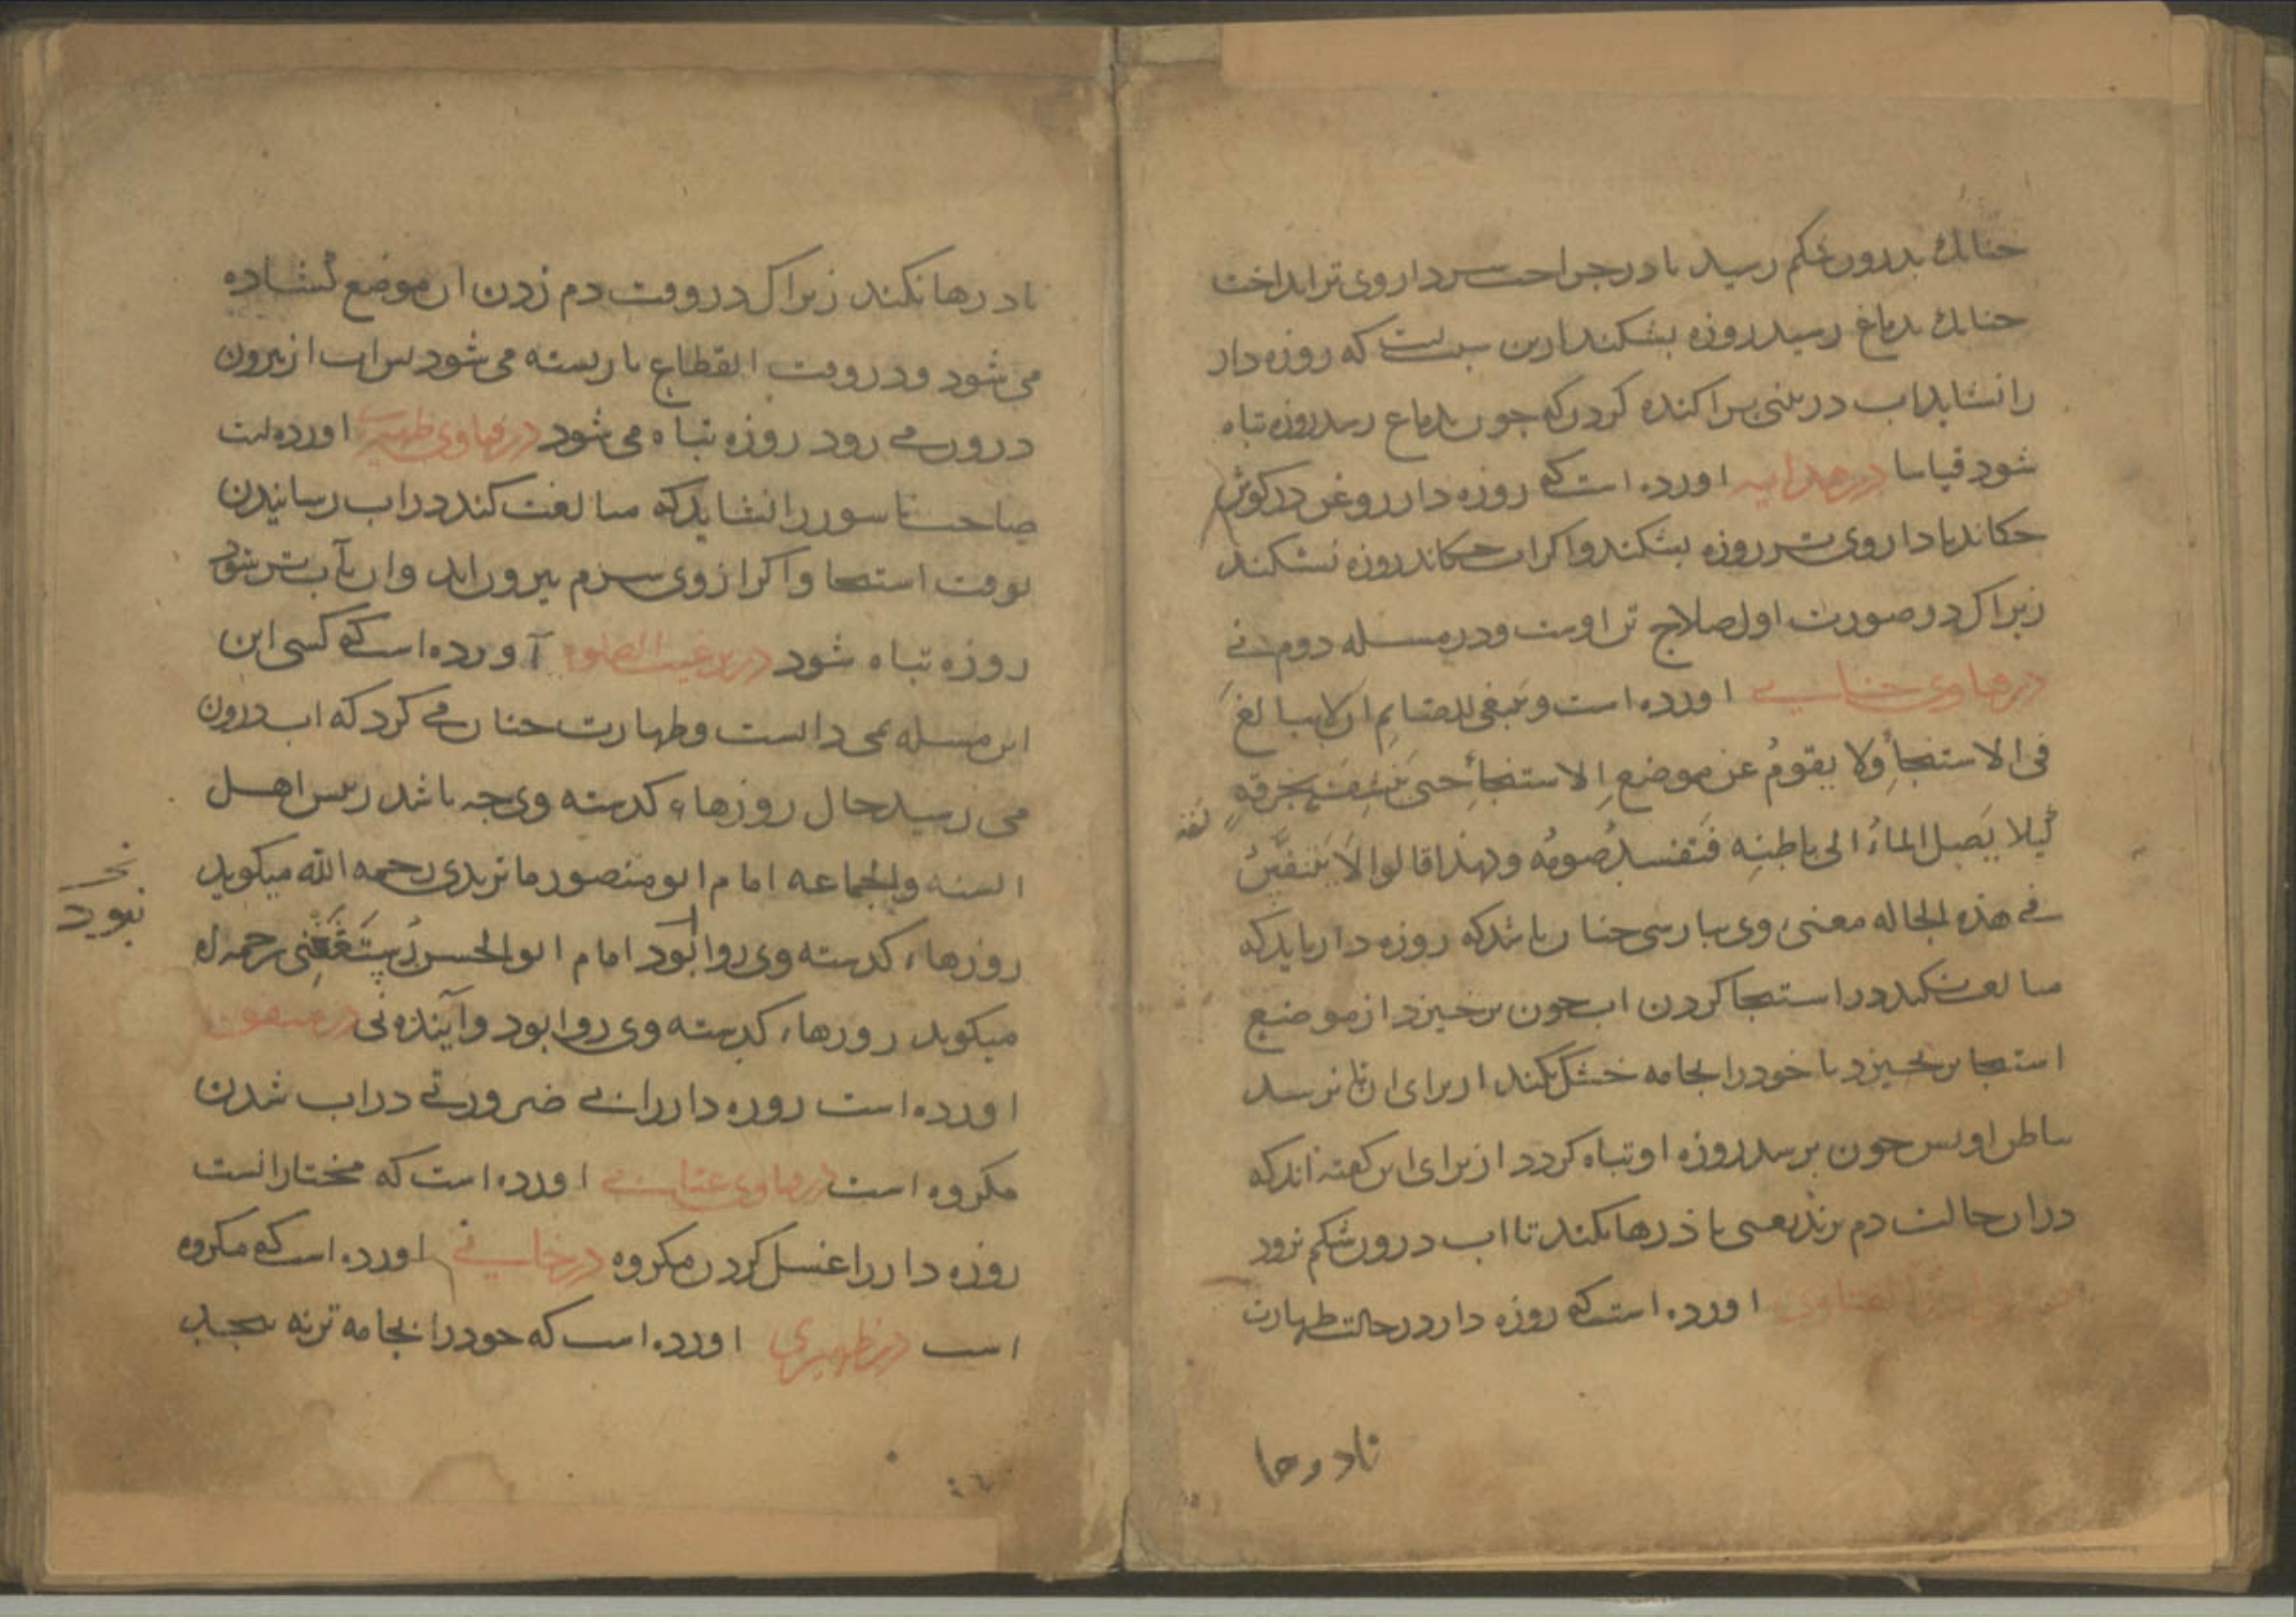 چنانک بدرون شکم رسید یا در جراحت سر داروی تر انداخت
چنانک بدماغ رسید روزه بشکند ازین سبب است که روزه دار
را نشاید اب در بینی پراکنده کردن که چون بدماغ رسد روزه تباه
شود قیاسا در هدایه اورده است که روزه دار روغن در کوش
چکاند یا داروی تر روزه بشکند و اکر اب چکاند روزه نشکند
زیراک در صورت اول صلاح تن اوست و در مسله دوم نی
در فتاوی خانی اورده است وینبغی للصایم ان لا یبالغ
فی الاستنجاءِ ولا یقومُ عن موضعِ الاستنجاءِ حتی ینشف بخرقةٍ
کیلا یَصِل الماءُ الی باطنِه فَتفسدُ صومُه ولهذا قالوا لا یتنفّسُ
فی هذه الحاله معنی وی بپارسی چنان باشد که روزه دار باید که
مبالغت نکند در استنجا کردن اب چون برخیزد از موضع
استنجا برخیزد تا خود را بجامه خشک نکند از برای ان تا نرسد
بباطن او پس چون برسد روزه او تباه کردد از برای این کفته اند که
در ان حالت دم نزند یعنی باذ رها نکند تا اب درون شکم نرود
اورده است که روزه دار در حالت طهارت
تا باد رها
باد رها نکند زیراک در وقت دم زدن ان موضع کشاده
می شود و در وقت انقطاع باز بسته می شود پس اب از بیرون
درون می رود روزه تباه می شود در فتاوی ظهیری اورده است
صاحب ناسور را نشاید که مبالغت کند در اب رسانیدن
بوقت استنجا و اکر از وی سرم بیرون اید و ان بآب تر شود
روزه تباه شود در ترغیب الصلوة آورده است که کسی این
این مسله نمی دانست و طهارت چنان می کرد که اب درون
می رسید حال روزهاء کذشته وی چه باشد رییس اهل
السنه والجماعه امام ابو منصور ماتریدی رحمه الله میکوید
روزهاء کذشته وی روا نبود امام ابو الحسن رُستَغْفَنِی رحمه الله
نبود
میکوید روزهاء کذشته وی روا بود و آینده نی در
اورده است روزه دار را بی ضرورتی در اب شدن
مکروه است در فتاوی عتابی اورده است که مختار انست
روزه دار را غسل کردن مکروه در خانی اورده است که مکروه
است در ظهیری اورده است که خود را بجامه تر نه پیچید